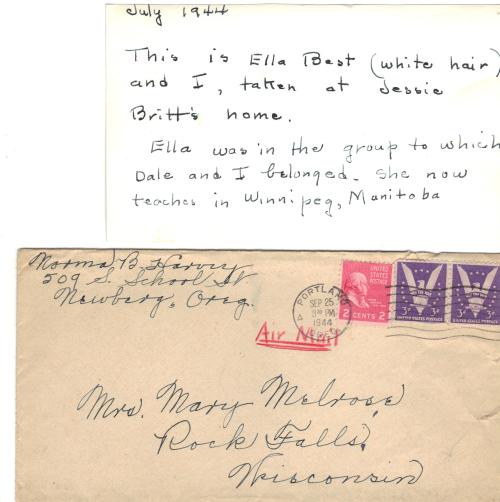 July 1944
This is Ella Best (white hair)
and I, taken at Jessie
Britt's home.
Ella was in the group to which
Dale and I belonged. She now
teaches in Winnipeg, Manitoba
Norma B. Harvey
509 S. School St
Newberg, Oreg.
PORTLAND
SEP 25
PM
1944
OREG.
UNITED
STATES
POSTAGE
2 CENTS 2
3¢ 3¢
UNITED STATES POSTAGE
3¢ 3¢
UNITED STATES POSTAGE
Air Mail
Mrs. Mary Melrose,
Rock Falls,
Wisconsin